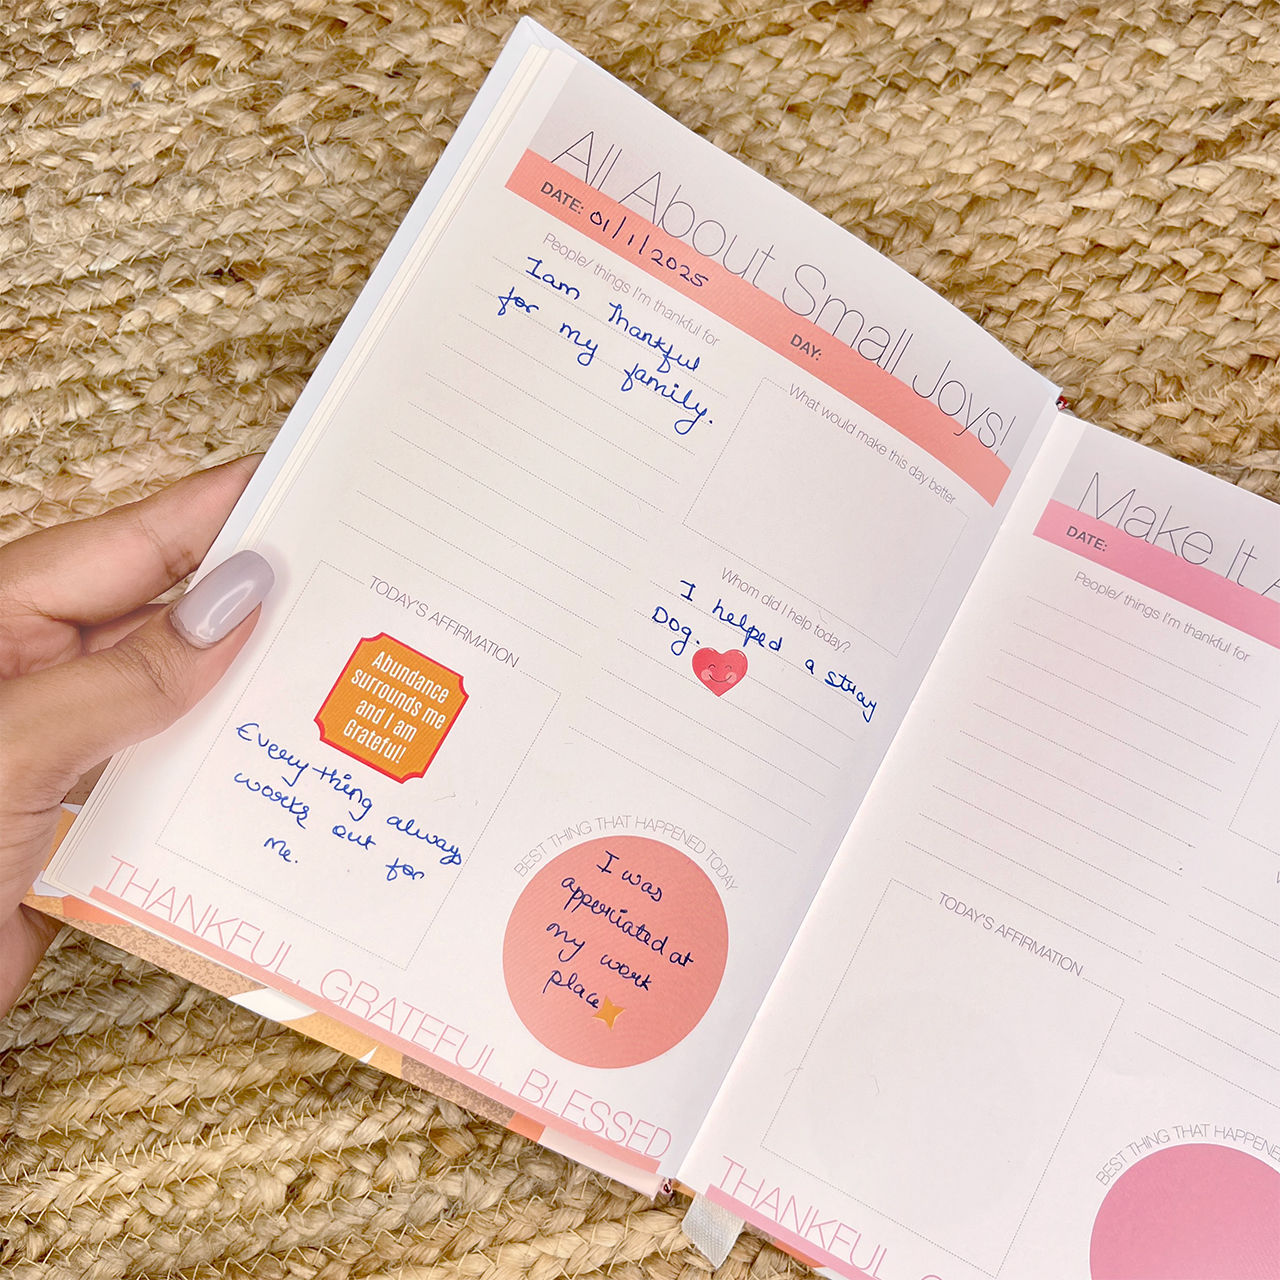 All About Small Joys!
DATE: 01/1/2025
DAY:
People/ things I'm thankful for
I am Thankful
for my family.
What would make this day better
Whom did I help today?
I helped a stray
Dog.
TODAY'S AFFIRMATION
Abundance
surrounds me
and I am
Grateful!
Everything always
works out for
me.
BEST THING THAT HAPPENED TODAY
I was
apperciated at
my work
place
THANKFUL, GRATEFUL, BLESSED
Make It
DATE:
People/ things I'm thankful for
TODAY'S AFFIRMATION
BEST THING THAT HAPPENE
THANKFUL